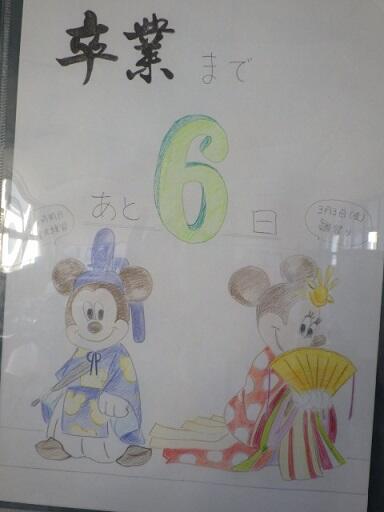 卒業まで
あと6日
3月3日(火)